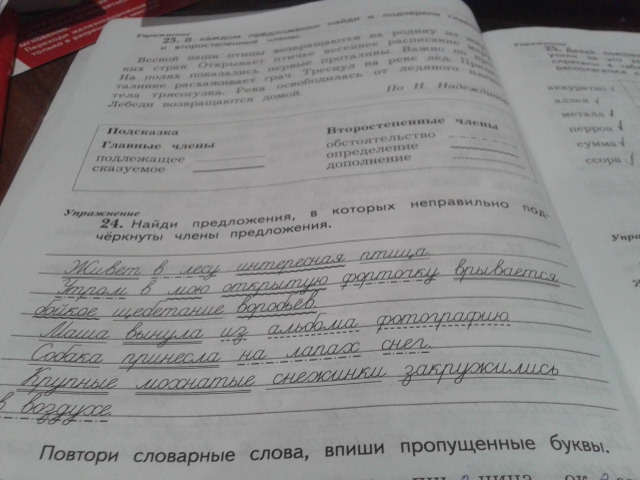 Упражнение
23. В каждом предложении найди и подчеркни
и второстепенные члены.
Весной наши птицы возвращаются на родину из
ких стран. Открывает птичье весеннее расписание
На полях показались первые проталины. Важно по
талинке расхаживает грач. Треснул на реке лёд.
тела трясогузка. Река освободилась от ледяного
Лебеди возвращаются домой.
По Н.
Подсказка
Главные члены
подлежащее
сказуемое
Второстепенные члены
обстоятельство
определение
дополнение
Упражнение
24. Найди предложения, в которых неправильно под-
чёркнуты члены предложения.
Живёт в лесу интересная птица.
Утром в мою открытую форточку врывается
бойкое щебетание воробьёв.
Маша вынула из альбома фотографию
Собака принесла на лапах снег.
Крупные мохнатые снежинки закружились
в воздухе.
Повтори словарные слова, впиши пропущенные буквы.
Упражнение
25.
аккуратно
аллея
металл
перрон
сумма
ссора